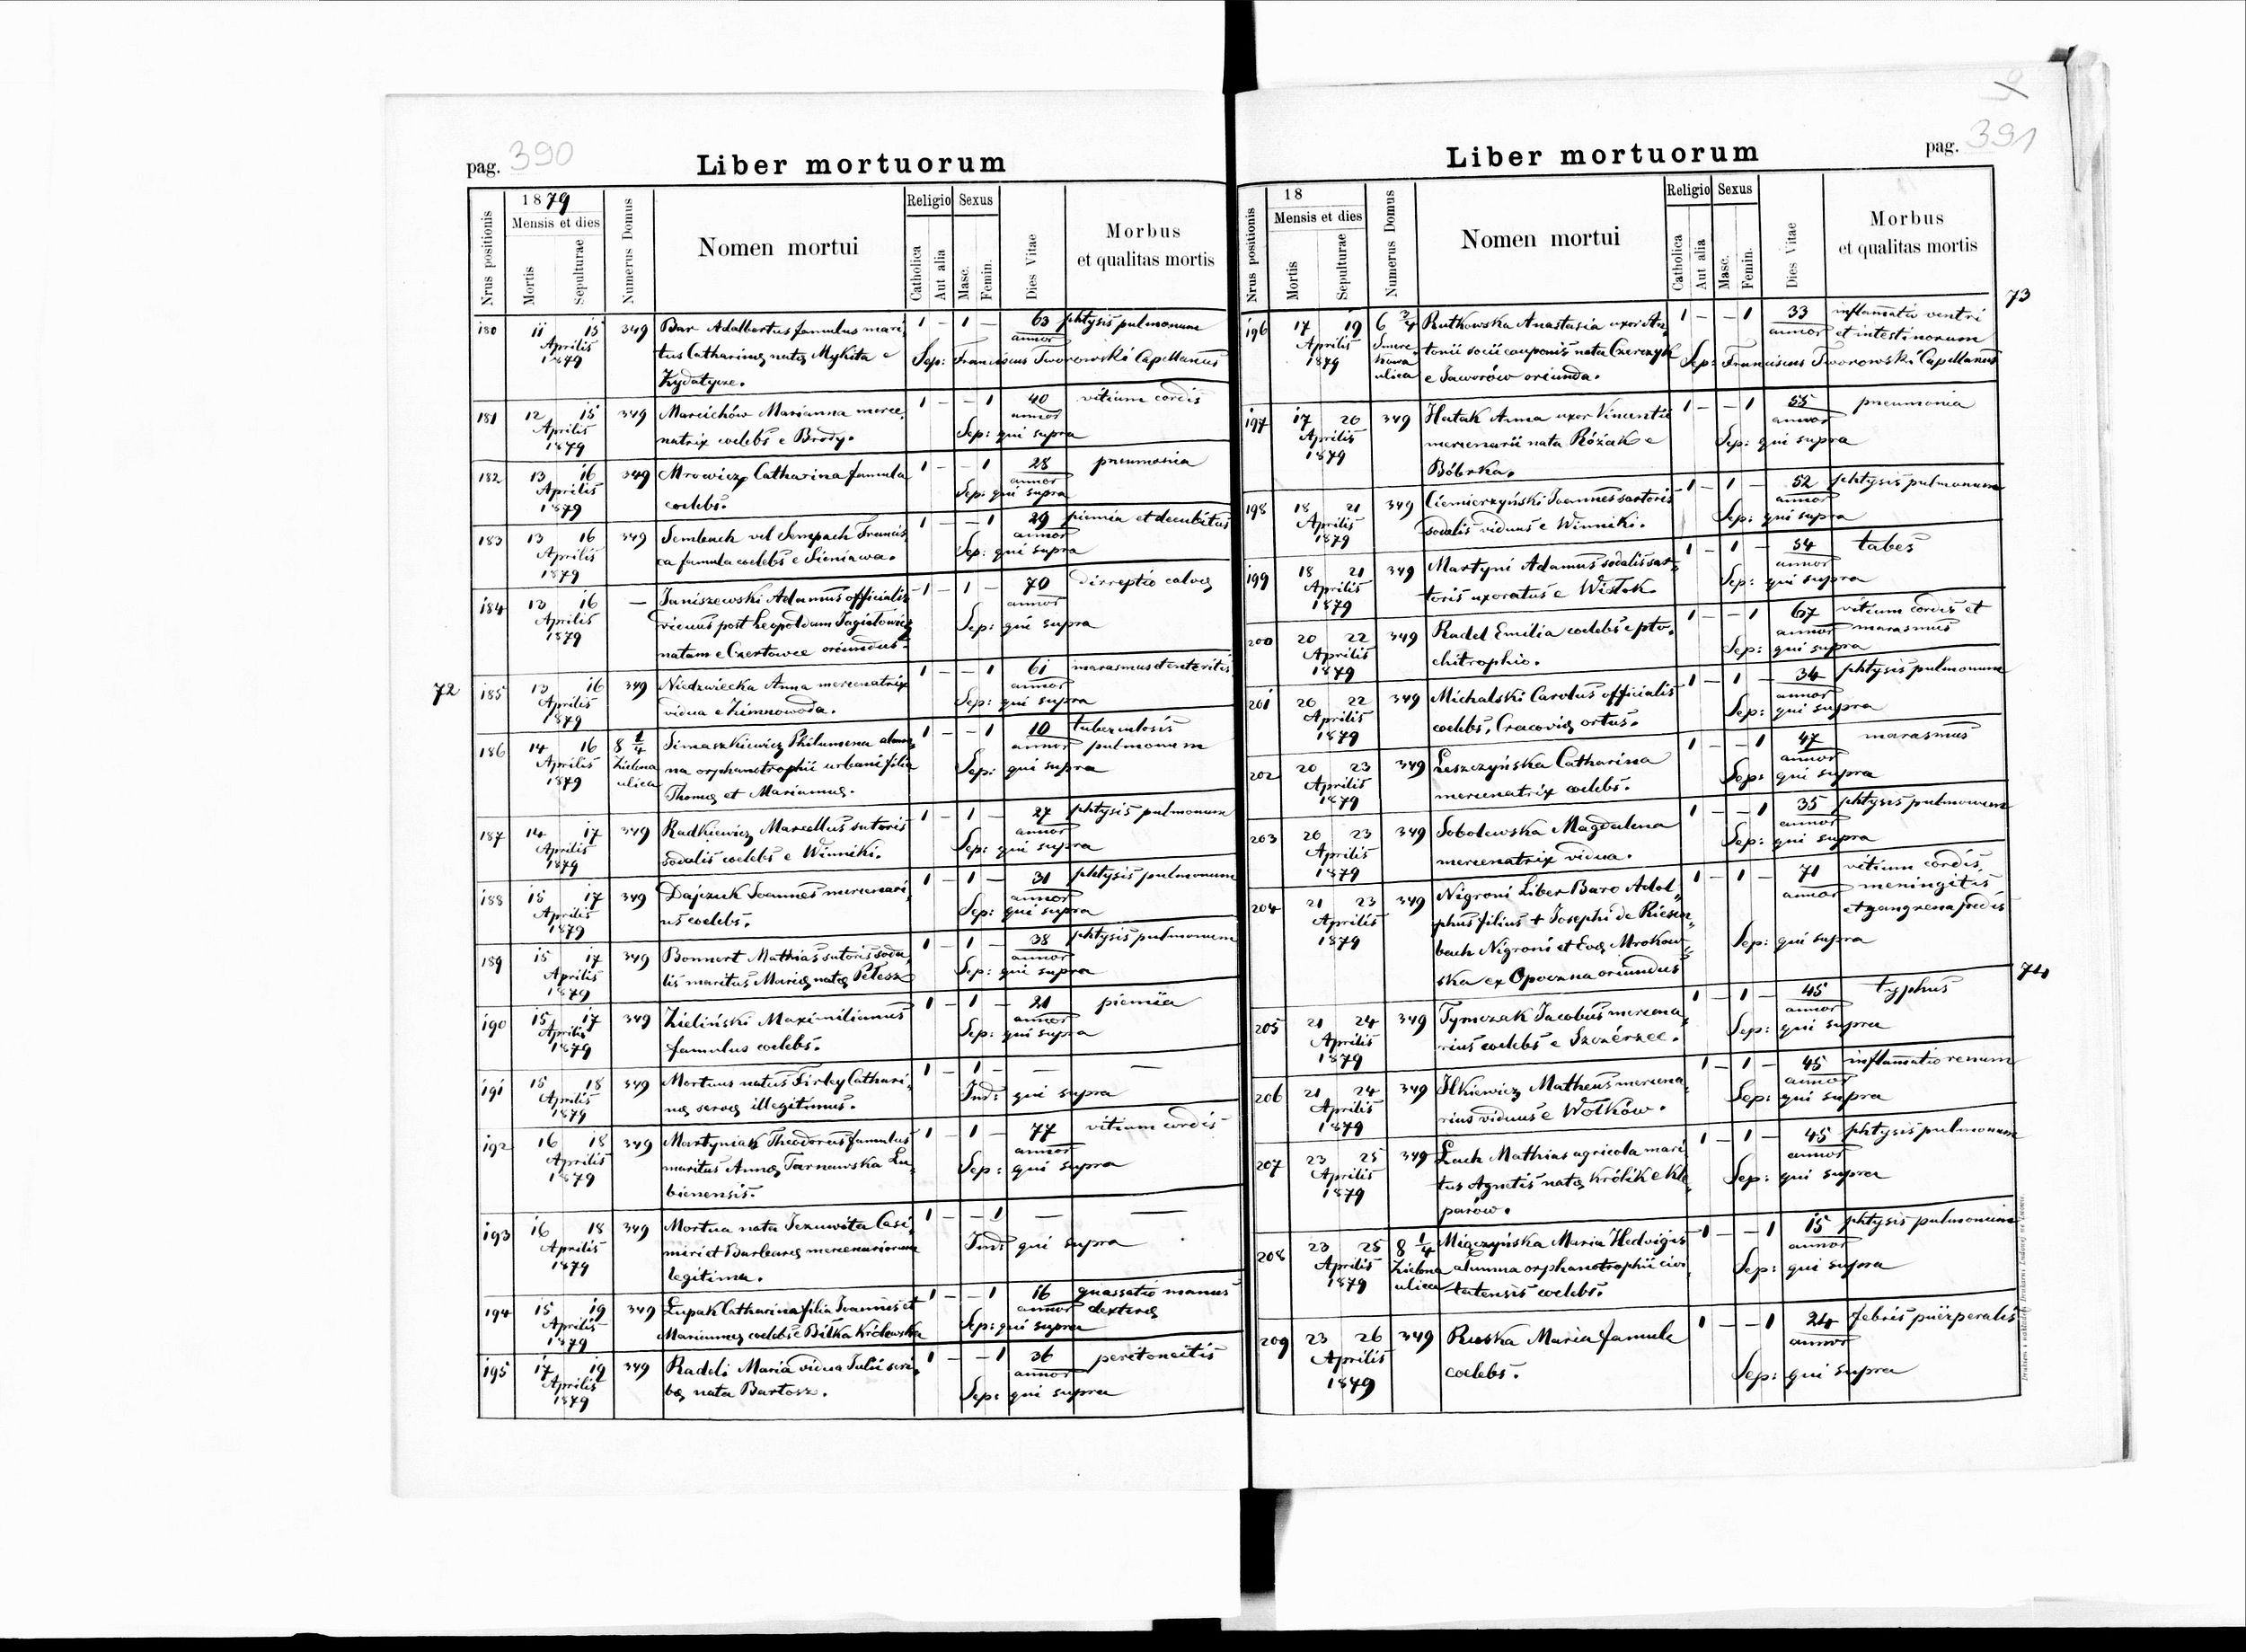 pag. 390
Liber mortuorum
1879
Mensis et dies
Nrus positionis
Mortis
Sepulturae
Numerus Domus
Nomen mortui
Religio
Catholica
Aut alia
Sexus
Masc.
Femin.
Dies Vitae
Morbus
et qualitas mortis
180 11 15 349 Bar Adalbertus famulus mari, 1 - 1 - 63 phtysis pulmonum
Aprilis tus Catharinę natę Mykita e annor Sep: Franciscus Tworowski Capellanus
1879 Zydatycze.
181 12 15 349 Marcichów Marianna merce, 1 - - 1 40 vitium cordis
Aprilis natrix coelebs e Brody. annor Sep: qui supra
1879
182 13 16 349 Mrowicz Catharina famula 1 - - 1 28 pneumonia
Aprilis coelebs. annor Sep: qui supra
1879
183 13 16 349 Sembach vel Sempach Francis 1 - - 1 29 piemia et decubitus
Aprilis ca famula coelebs e Sieniawa. annor Sep: qui supra
1879
184 13 16 — Janiszewski Adamus officialis 1 - 1 - 70 dirreptio calvę
Aprilis viduus post Leopoldam Jagiełowicz annor Sep: qui supra
1879 natam e Czertowce oriundus.
72
185 13 16 349 Niedzwiecka Anna mercenatrix 1 - - 1 61 marasmus et enteritis
Aprilis vidua e Zimnowoda. annor Sep: qui supra
1879
186 14 16 8 1/4 Simaszkiewicz Philumena alum, 1 - - 1 10 tuberculosis
Aprilis Zielona na orphanotrophii urbani filia annor pulmonum
1879 ulica Thomę et Mariannę. Sep: qui supra
187 14 17 349 Radkiewicz Marcellus sutoris 1 - 1 - 27 phtysis pulmonum
Aprilis sodalis coelebs e Winniki. annor Sep: qui supra
1879
188 15 17 349 Dajczuk Joannes mercenari, 1 - 1 - 31 phtysis pulmonum
Aprilis us coelebs. annor Sep: qui supra
1879
189 15 17 349 Bonnert Mathias sutoris soda, 1 - 1 - 38 phtysis pulmonum
Aprilis lis maritus Marię natę Pełesz annor Sep: qui supra
1879
190 15 17 349 Zieliński Maximilianus 1 - 1 - 21 piemia
Aprilis famulus coelebs. annor Sep: qui supra
1879
191 15 18 349 Mortuus natus Firley Cathari, 1 - 1 - — —
Aprilis nę servę illegitimus. Ind: qui supra
1879
192 16 18 349 Martyniak Theodorus famulus 1 - 1 - 77 vitium cordis
Aprilis maritus Annę Tarnawska Lu, annor Sep: qui supra
1879 bienensis.
193 16 18 349 Mortua nata Jezuwita Casi, 1 - - 1 — —
Aprilis miri et Barbarę mercenariorum Ind: qui supra
1879 legitima.
194 15 19 349 Łupak Catharina filia Joannis et 1 - - 1 16 quassatio manus
Aprilis Mariannę coelebs e Biłka Królewska annor dextrę Sep: qui supra
1879
195 17 19 349 Radeli Maria vidua Julii scri, 1 - - 1 36 peritoneitis
Aprilis bę nata Bartosz. annor Sep: qui supra
1879
9
pag. 391
Liber mortuorum
18
Mensis et dies
Nrus positionis
Mortis
Sepulturae
Numerus Domus
Nomen mortui
Religio
Catholica
Aut alia
Sexus
Masc.
Femin.
Dies Vitae
Morbus
et qualitas mortis
73
196 17 19 6 3/4 Rutkowska Anastasia uxor An, 1 - - 1 33 inflamatio ventri
Aprilis tonii socii cauponis nata Czerczyk annor et intestinorum
1879 ulica e Jaworów oriunda. Sep: Franciscus Tworowski Capellanus
197 17 20 349 Hatak Anna uxor Vincentii 1 - - 1 55 pneumonia
Aprilis mercenarii nata Rózak e annor Sep: qui supra
1879 Bóbrka.
198 18 21 349 Ciemierzyński Joannes sartoris 1 - 1 - 52 phtysis pulmonum
Aprilis sodalis viduus e Winniki. annor Sep: qui supra
1879
199 18 21 349 Martyni Adamus sodalis sar, 1 - 1 - 54 tabes
Aprilis toris uxoratus e Wisłok. annor Sep: qui supra
1879
200 20 22 349 Radel Emilia coelebs e pto, 1 - - 1 67 vitium cordis et
Aprilis chitrophio. annor marasmus
1879 Sep: qui supra
201 20 22 349 Michalski Carolus officialis 1 - 1 - 34 phtysis pulmonum
Aprilis coelebs, Cracovię ortus. annor Sep: qui supra
1879
202 20 23 349 Leszczyńska Catharina 1 - - 1 47 marasmus
Aprilis mercenatrix coelebs. annor Sep: qui supra
1879
203 20 23 349 Sobolewska Magdalena 1 - - 1 35 phtysis pulmonum
Aprilis mercenatrix vidua. annor Sep: qui supra
1879
204 21 23 349 Nigroni Liber Baro Adol, 1 - 1 - 71 vitium cordis,
Aprilis phus filius + Josephi de Riesen, annor meningitis
1879 bach Nigroni et Evę Mrokow, et gangrena pedis
ska ex Opoczna oriundus Sep: qui supra
74
205 21 24 349 Tymczak Jacobus mercena, 1 - 1 - 45 typhus
Aprilis rius coelebs e Szczérzec. annor Sep: qui supra
1879
206 21 24 349 Ilkiewicz Matheus mercena, 1 - 1 - 45 inflamatio renum
Aprilis rius viduus e Wołków. annor Sep: qui supra
1879
207 23 25 349 Łach Mathias agricola mari, 1 - 1 - 45 phtysis pulmonum
Aprilis tus Agnetis natę Królik e Kle, annor Sep: qui supra
1879 parów.
208 23 25 8 1/4 Miączyńska Maria Hedvigis 1 - - 1 15 phtysis pulmonum
Aprilis Zielona alumna orphanotrophii civi, annor Sep: qui supra
1879 ulica tatensis coelebs.
209 23 26 349 Ruska Maria famula 1 - - 1 24 febris püerperalis
Aprilis coelebs. annor Sep: qui supra
1879